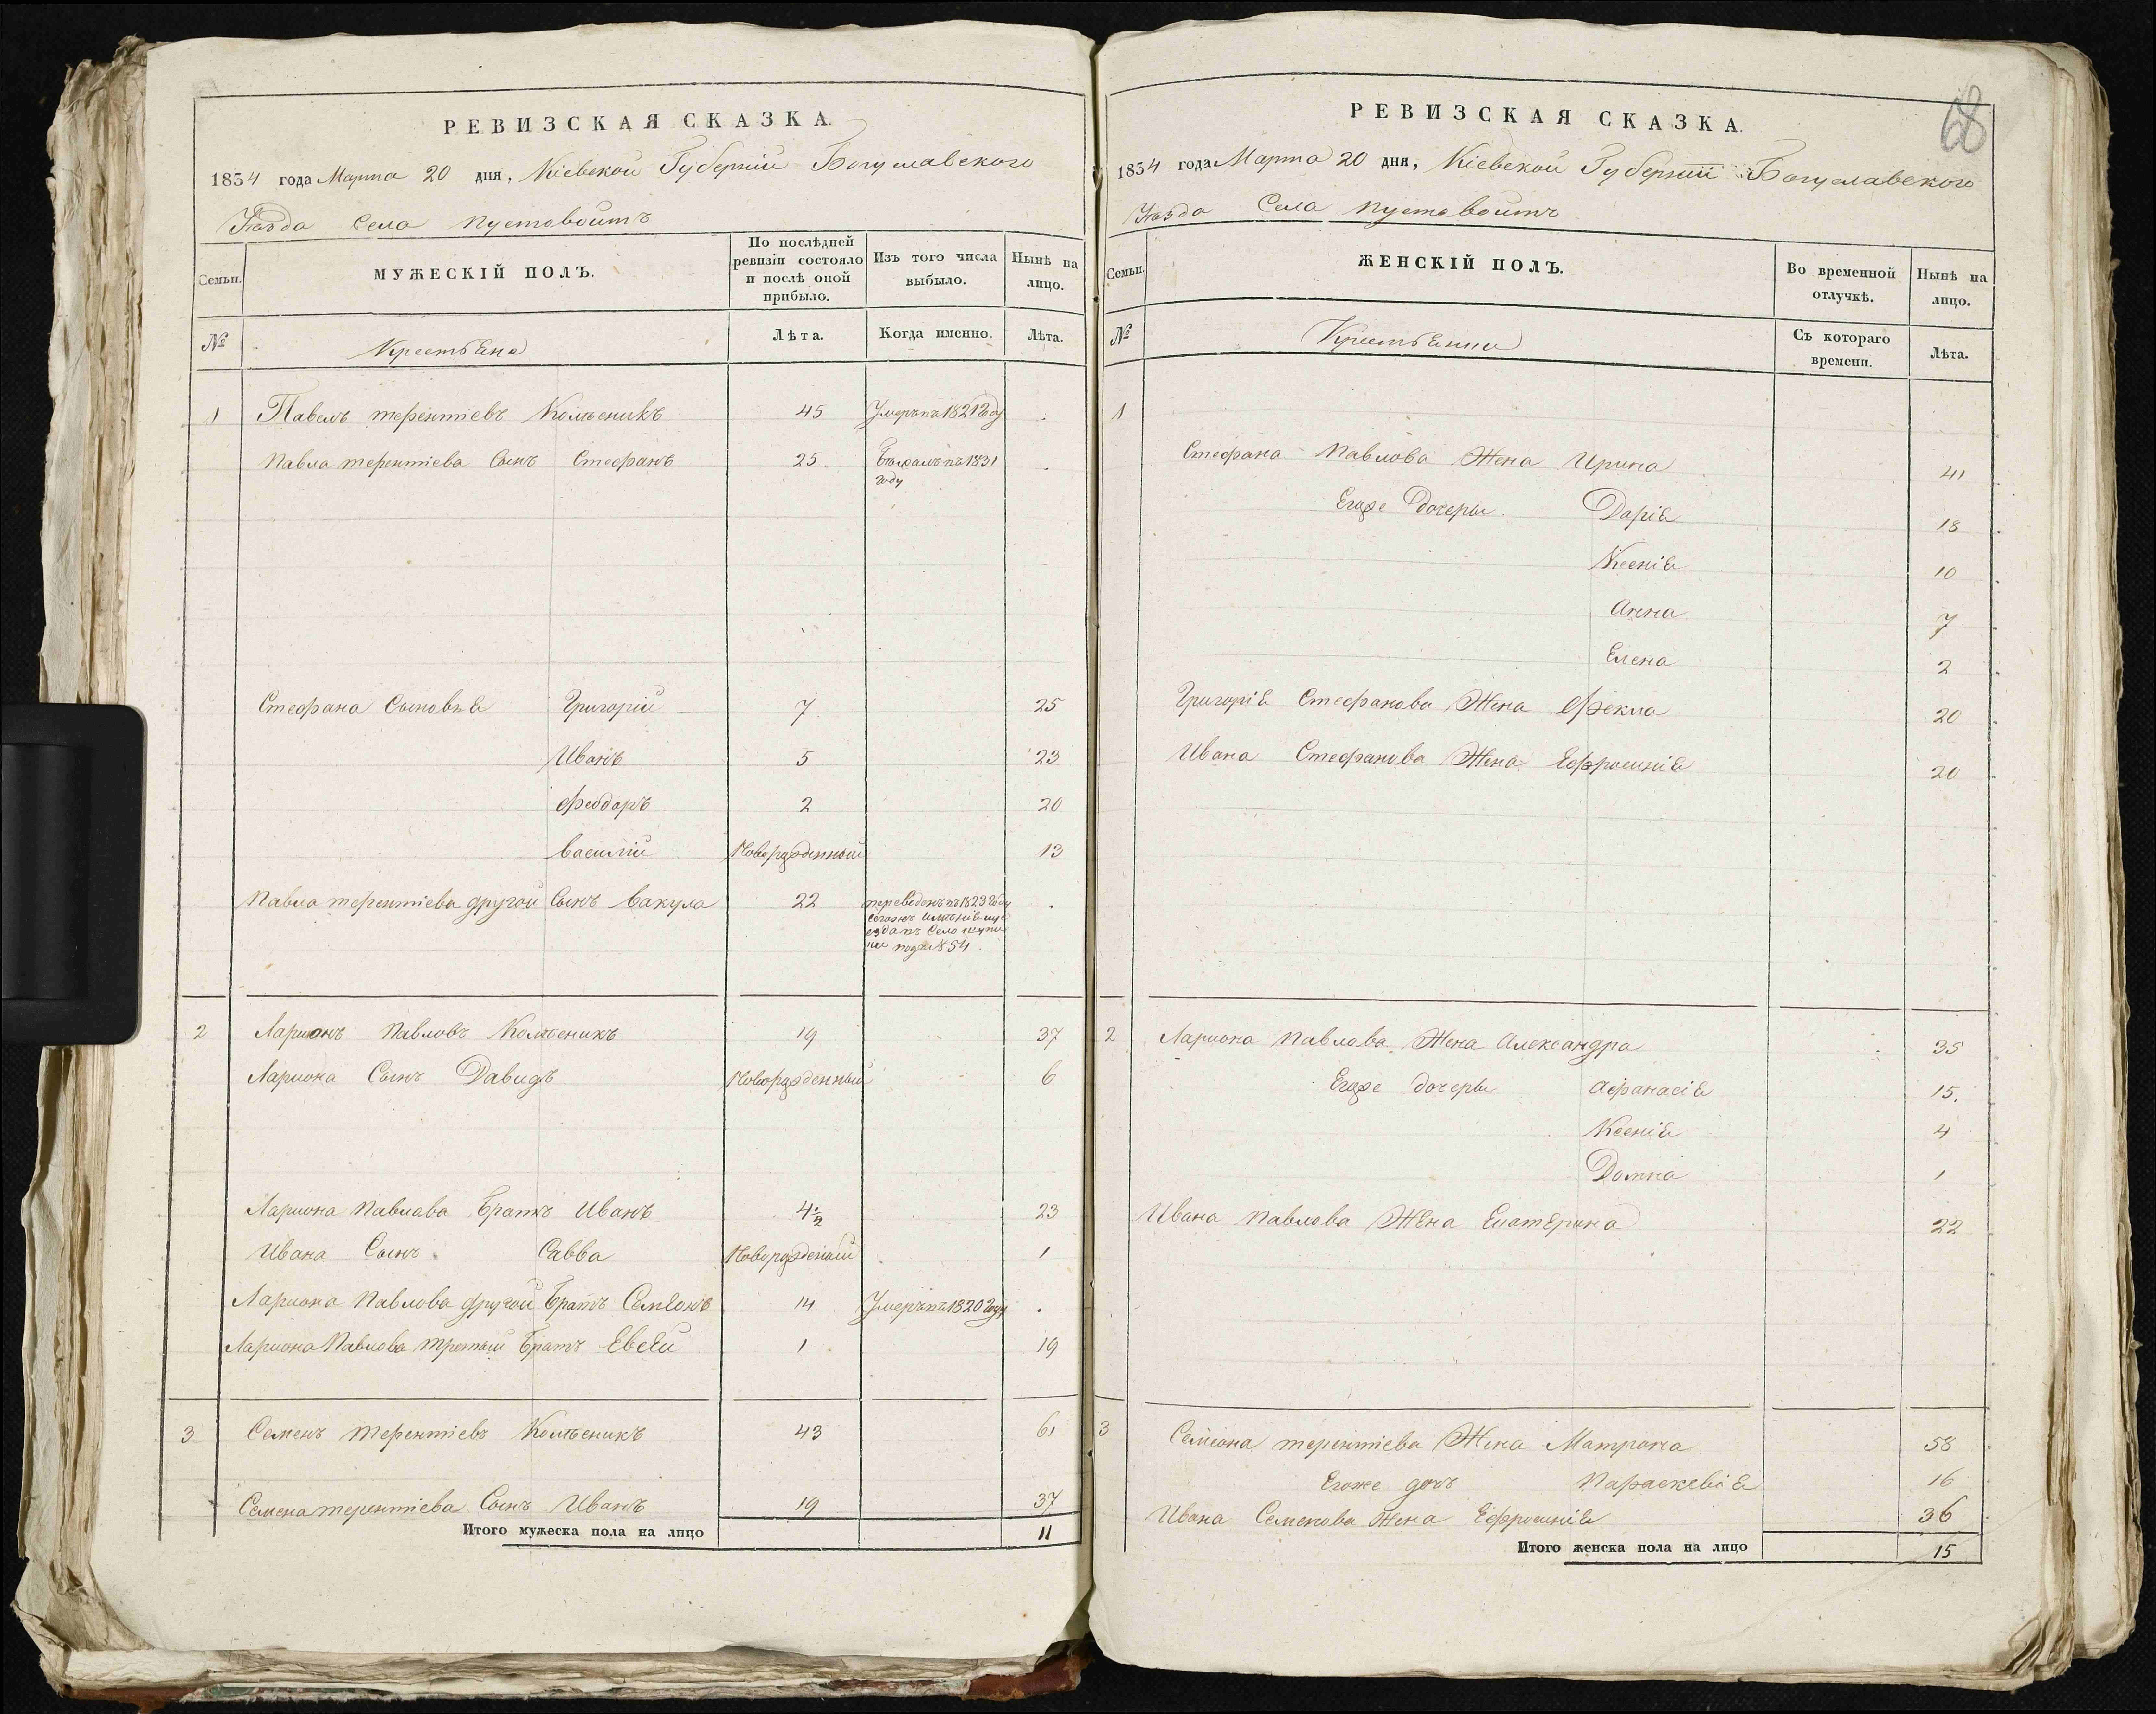 РЕВИЗСКАЯ СКАЗКА.
1834 года Марта 20 дня, Кіевской Губерніи Богуславского
Уѣзда Села Пустовойтъ
Семьи. МУЖЕСКІЙ ПОЛЪ. По послѣдней ревизіи состояло и послѣ оной прибыло. Изъ того числа выбыло. Нынѣ на лицо.
№ Крестьяне Лѣта. Когда именно. Лѣта.
1 Павелъ терентіевъ Колѣсникъ 45 Умеръ въ 1821 Году
Павла терентіева Сынъ Стефанъ 25 Бѣжалъ въ 1831
Году
Стефана Сыновья Григорій 7 25
Иванъ 5 23
Феодоръ 2 20
Василій Новорожденный 13
Павла терентіева другой Сынъ Вакула 22 переведенъ въ 1823 Году
Села
под № 54.
2 Ларионъ Павловъ Колѣсникъ 19 37
Лариона Сынъ Давидъ Новорожденный 6
Лариона Павлова Братъ Иванъ 4½ 23
Ивана Сынъ Савва Новорожденый 1
Лариона Павлова другой Братъ Семіонъ 14 Умеръ въ 1820 Году
Лариона Павлова третый Братъ Евсей 1 19
3 Семенъ терентіевъ Колѣсникъ 43 61
Семена терентіева Сынъ Иванъ 19 37
Итого мужеска пола на лицо 11
68
РЕВИЗСКАЯ СКАЗКА.
1834 года Марта 20 дня, Кіевской Губерніи Богуславского
Уѣзда Села Пустовойтъ
Семьи. ЖЕНСКІЙ ПОЛЪ. Во временной отлучкѣ. Нынѣ на лицо.
№ Крестьянки Съ котораго времени. Лѣта.
1
Стефана Павлова Жена Ирина 41
Егоже дочеры Дарія 18
Ксенія 10
Анна 7
Елена 2
Григорія Стефанова Жена Фекла 20
Ивана Стефанова Жена Ефросинія 20
2 Лариона Павлова Жена Александра 35
Егоже дочеры Афанасія 15.
Ксенія 4
Домна 1
Ивана Павлова Жена Екатерина 22
3 Семіона терентіева Жена Матрона 58
Егоже дочь Параскевія 16
Ивана Семенова Жена Ефросинія 36
Итого женска пола на лицо 15